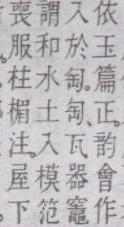 依玉篇正韵會作
入於匋。匋、瓦器竈
謂和水土入模笵
喪服柱楣注。屋下